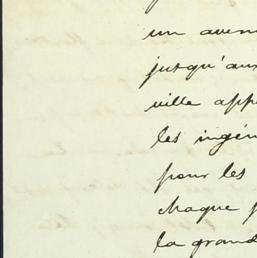 un aven
jusqu'aux
ville appe
les ingén
pour les
chaque p
la grand